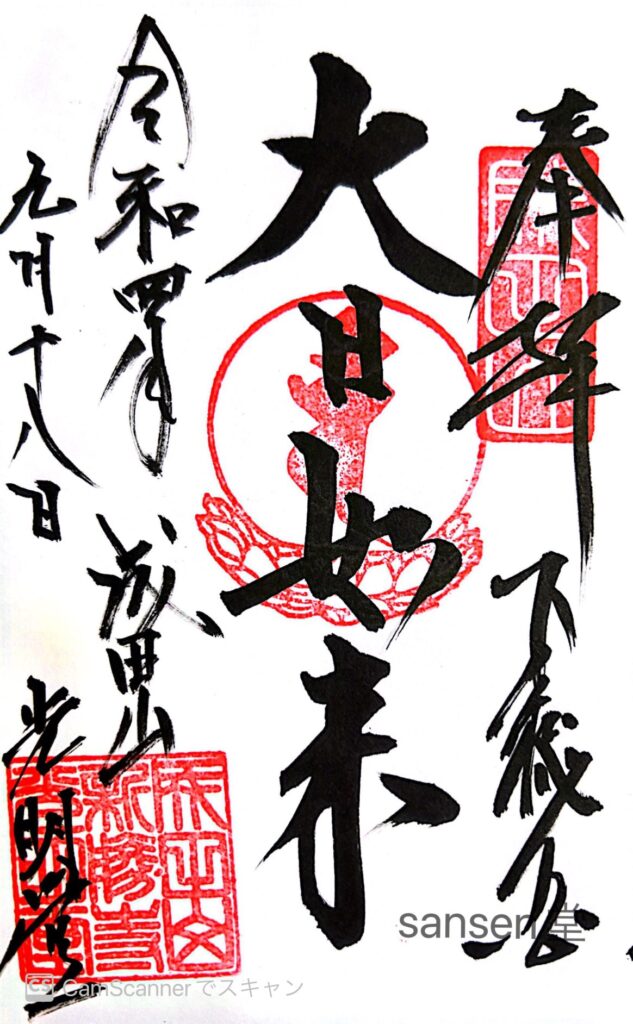 奉拝 下総
成田山
大日如来
令和四年 成田山
九月十八日 光明堂
成田山
新勝寺
光明堂
sansen 堂
CS CamScanner でスキャン